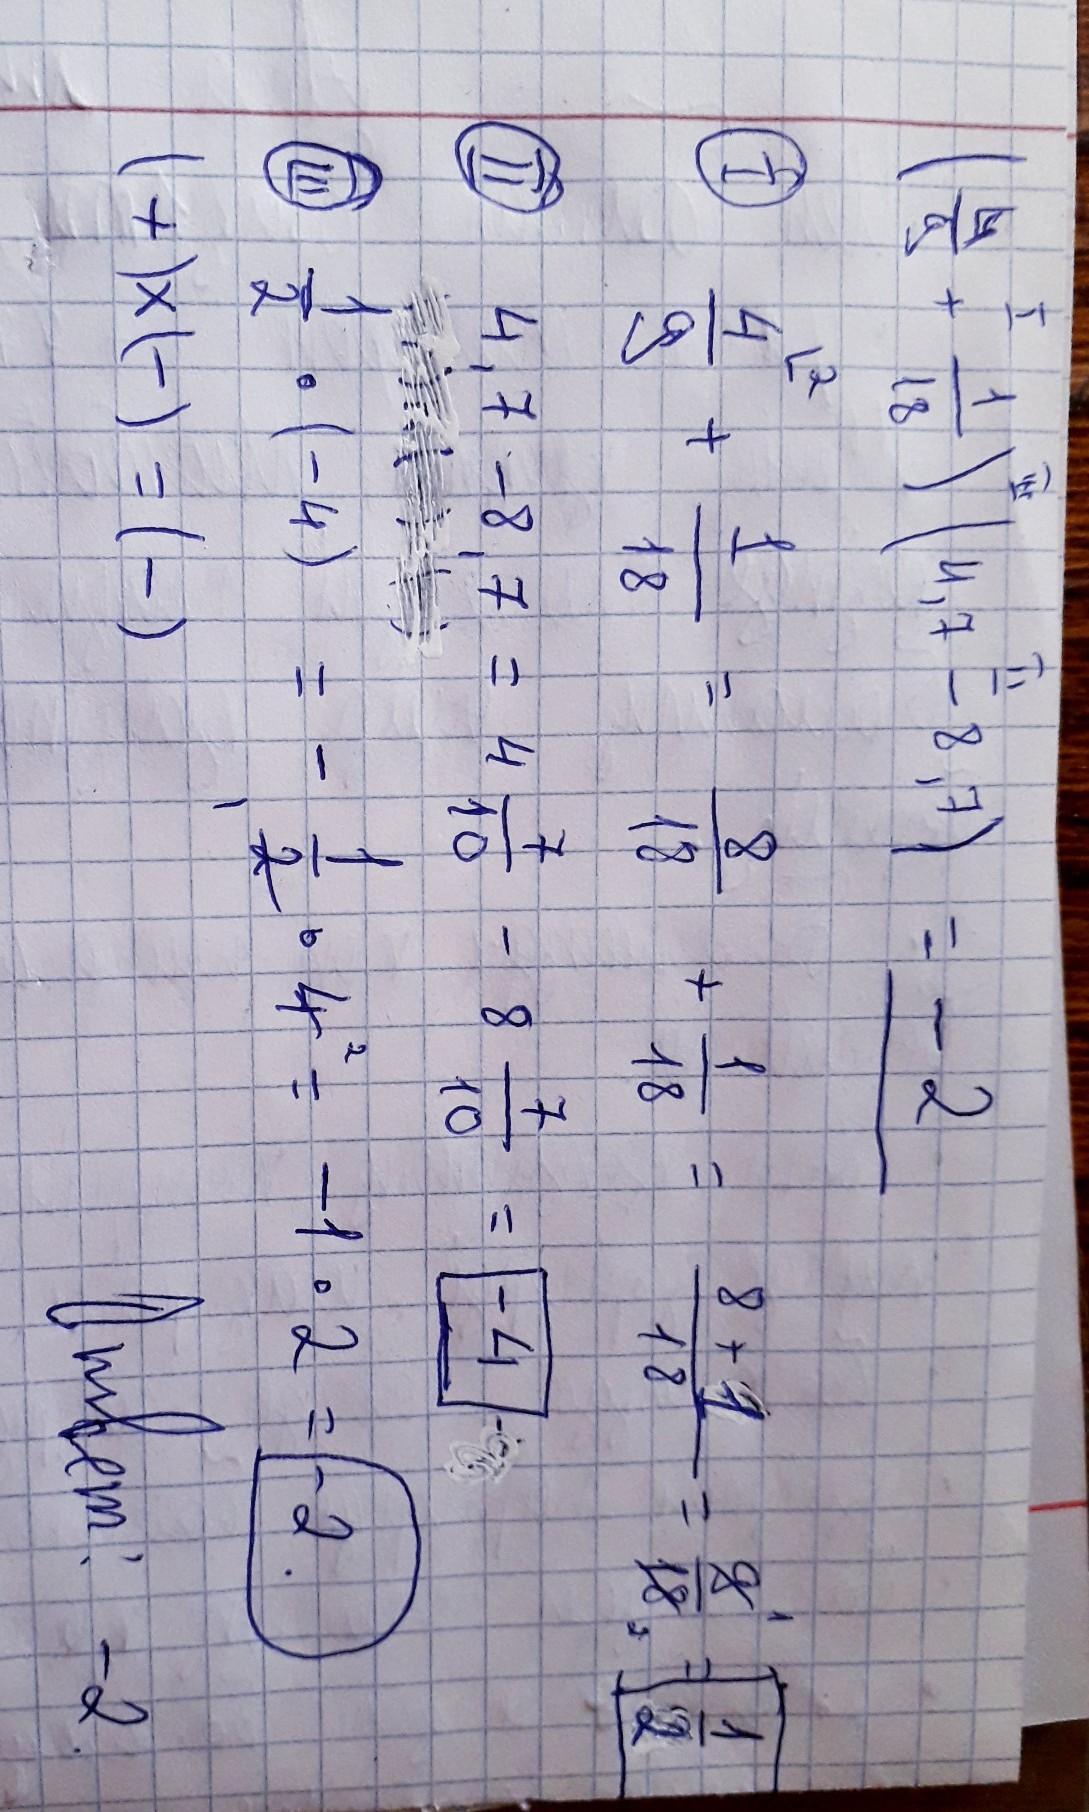 (4/9 + 1/18) (4,7 - 8,7) = - 2
I 4/9 + 1/18 = 8/18 + 1/18 = 8 + 1/18 = 9/18 = 1/2
II 4,7 - 8,7 = 4 7/10 - 8 7/10 = - 4
III 1/2 · (- 4) = - 1/2 · 4 = - 1 · 2 = - 2.
(+)x(-) = (-)
Ответ: - 2.